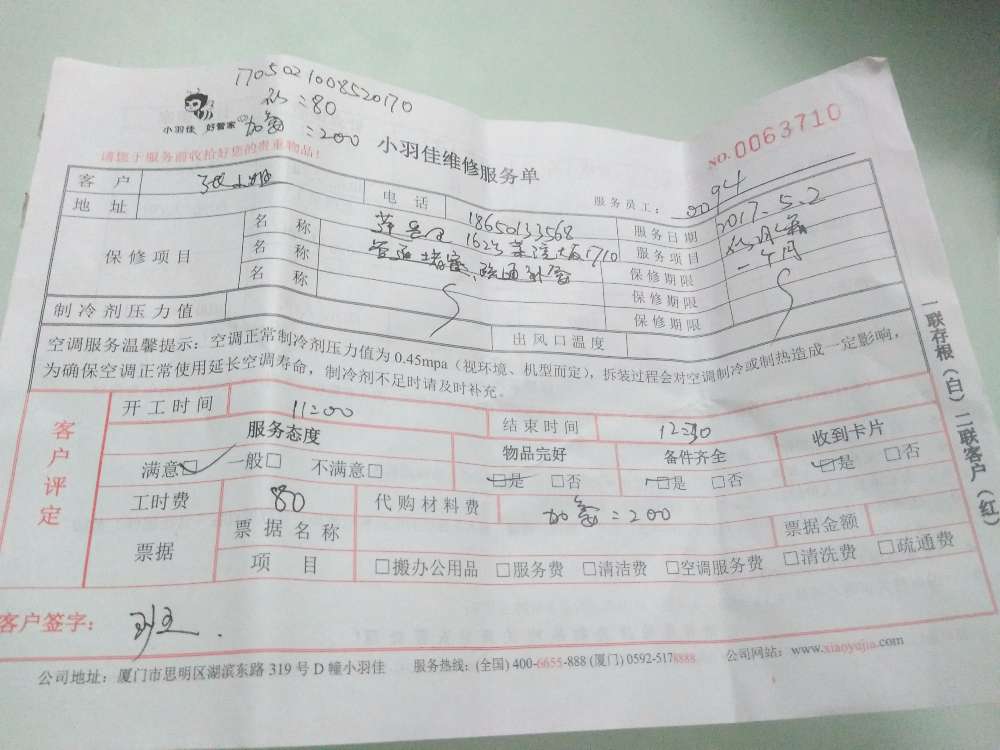 170502100852017０
=80
小羽佳 好管家
加氟=200
小羽佳维修服务单
NO.0063710
请您于服务前收拾好您的贵重物品！
服务员工： 0094
客户 张小姐 电话 18650133568 服务日期 2017.5.2
地址
保修项目
名称 服务项目
名称 管道堵塞、疏通 保修期限 一个月
名称 保修期限
保修期限
制冷剂压力值 出风口温度
空调服务温馨提示：空调正常制冷剂压力值为 0.45mpa（视环境、机型而定），拆装过程会对空调制冷或制热造成一定影响，
为确保空调正常使用延长空调寿命，制冷剂不足时请及时补充。
客户评定
开工时间 11:00 结束时间 12:30
服务态度 物品完好 备件齐全 收到卡片
满意□ 一般□ 不满意□ □是 □否 □是 □否 □是 □否
工时费 80 代购材料费 加氟=200
票据 票据名称 票据金额
项目 □搬办公用品 □服务费 □清洁费 □空调服务费 □清洗费 □疏通费
客户签字：
公司地址：厦门市思明区湖滨东路 319 号 D 幢小羽佳 服务热线：(全国) 400-6655-888 (厦门) 0592-5178888 公司网站：www.xiaoyujia.com
一联存根（白）二联客户（红）